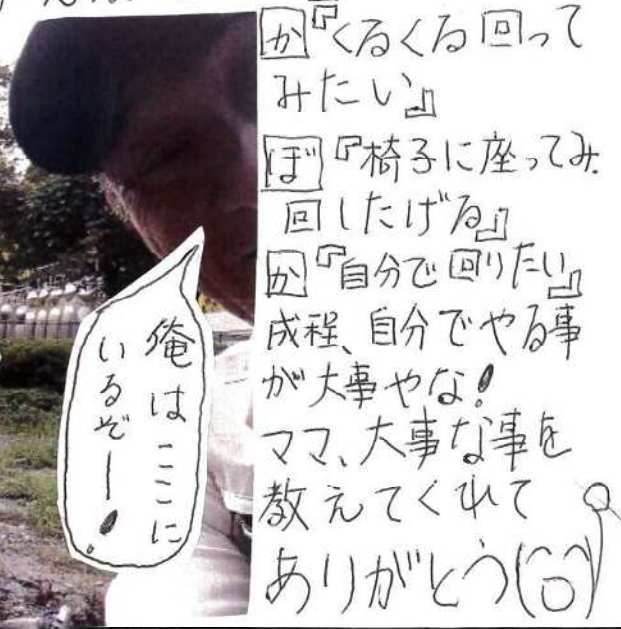 か『くるくる回って
みたい』
ぼ『椅子に座ってみ
回したげる』
か『自分で回りたい』
成程、自分でやる事
が大事やな!
ママ、大事な事を
教えてくれて
ありがとう(^O^)/
俺はここに
いるぞー!